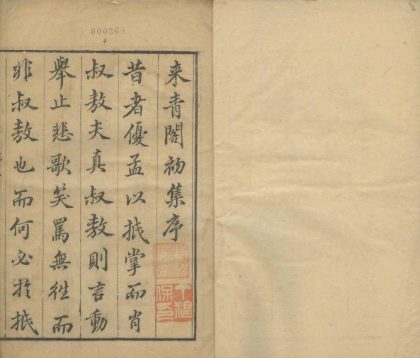 来青閣初集序
昔者優孟以抵掌而肖
叔敖夫真叔敖則言動
舉止悲歌笑罵無往而
非叔敖也而何必於抵
000268